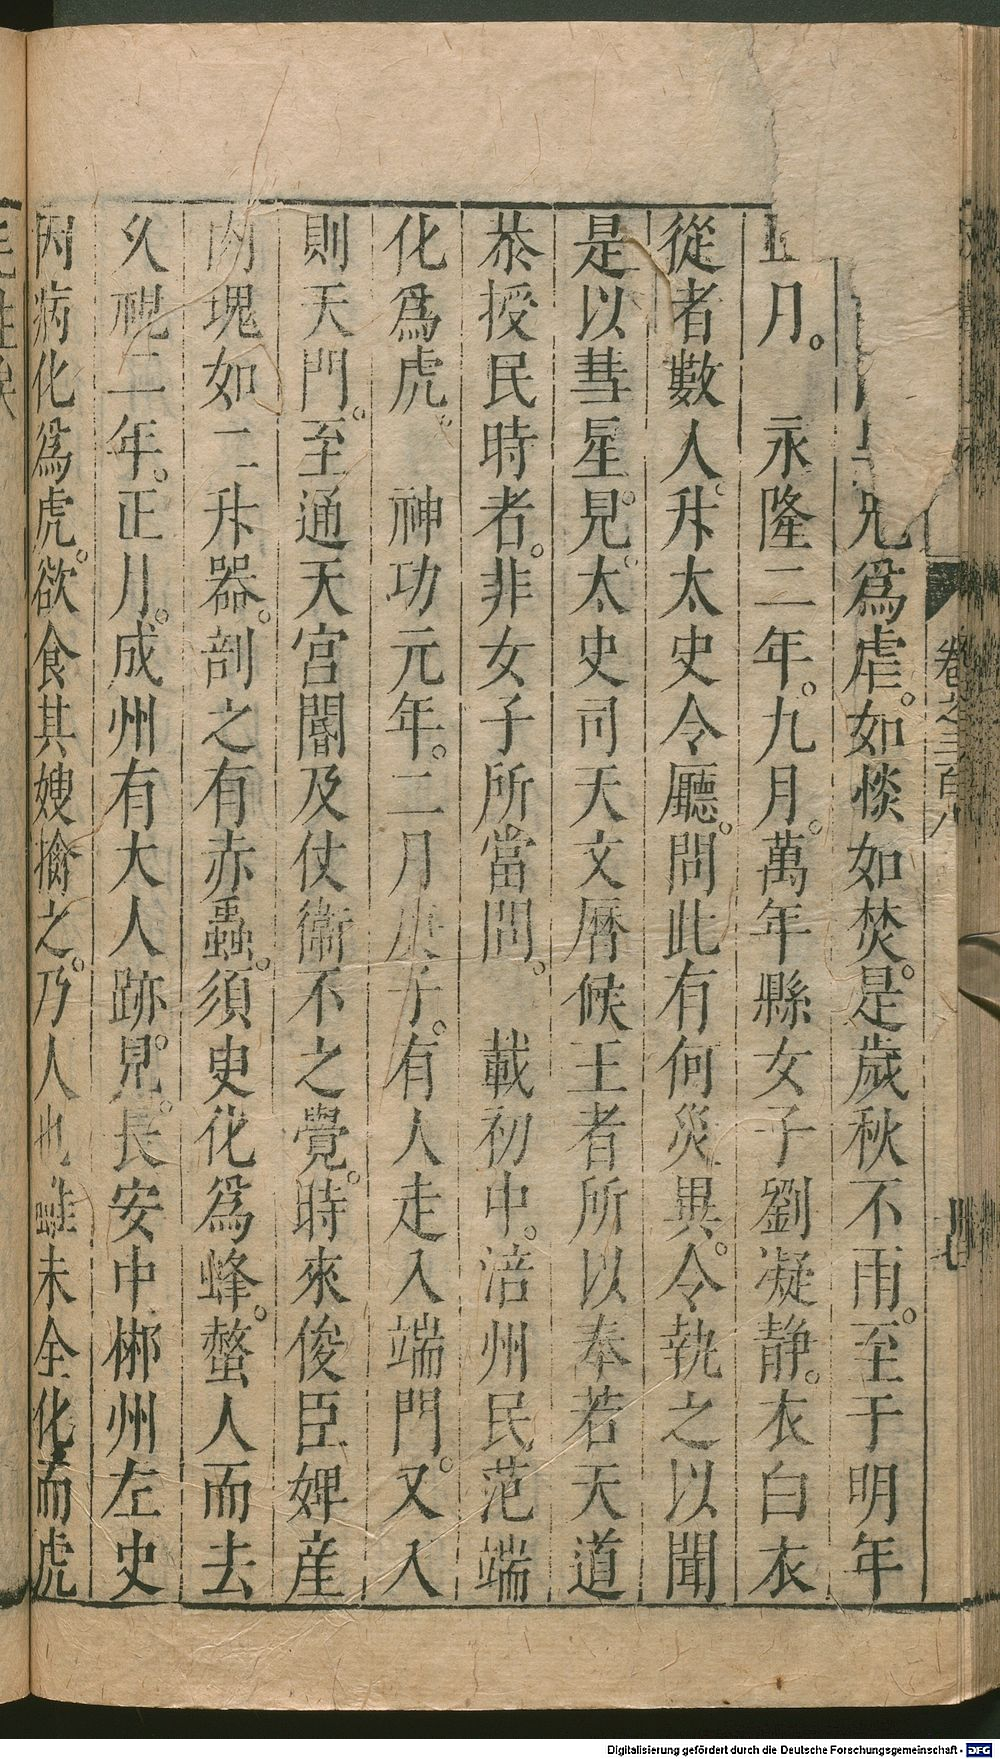 卷之三百八
兄爲虐。如惔如焚。是歲秋不雨。至于明年
正月。　永隆二年。九月。萬年縣女子劉凝靜。衣白衣
從者數人。升太史令廳。問此有何災異。令執之以聞
是以彗星見。太史司天文曆候。王者所以奉若天道
恭授民時者。非女子所當問。　載初中。涪州民范端
化爲虎。　神功元年。二月庚子。有人走入端門。又入
則天門。至通天宮。閽及仗衞不之覺。時來俊臣婢産
肉塊如二升器。剖之有赤蟲。須臾化爲蜂。螫人而去
久視二年。正月。成州有大人跡。見。長安中郴州左史
因病化爲虎。欲食其嫂擒之。乃人也雖未全化而虎
Digitalisierung gefördert durch die Deutsche Forschungsgemeinschaft - DFG